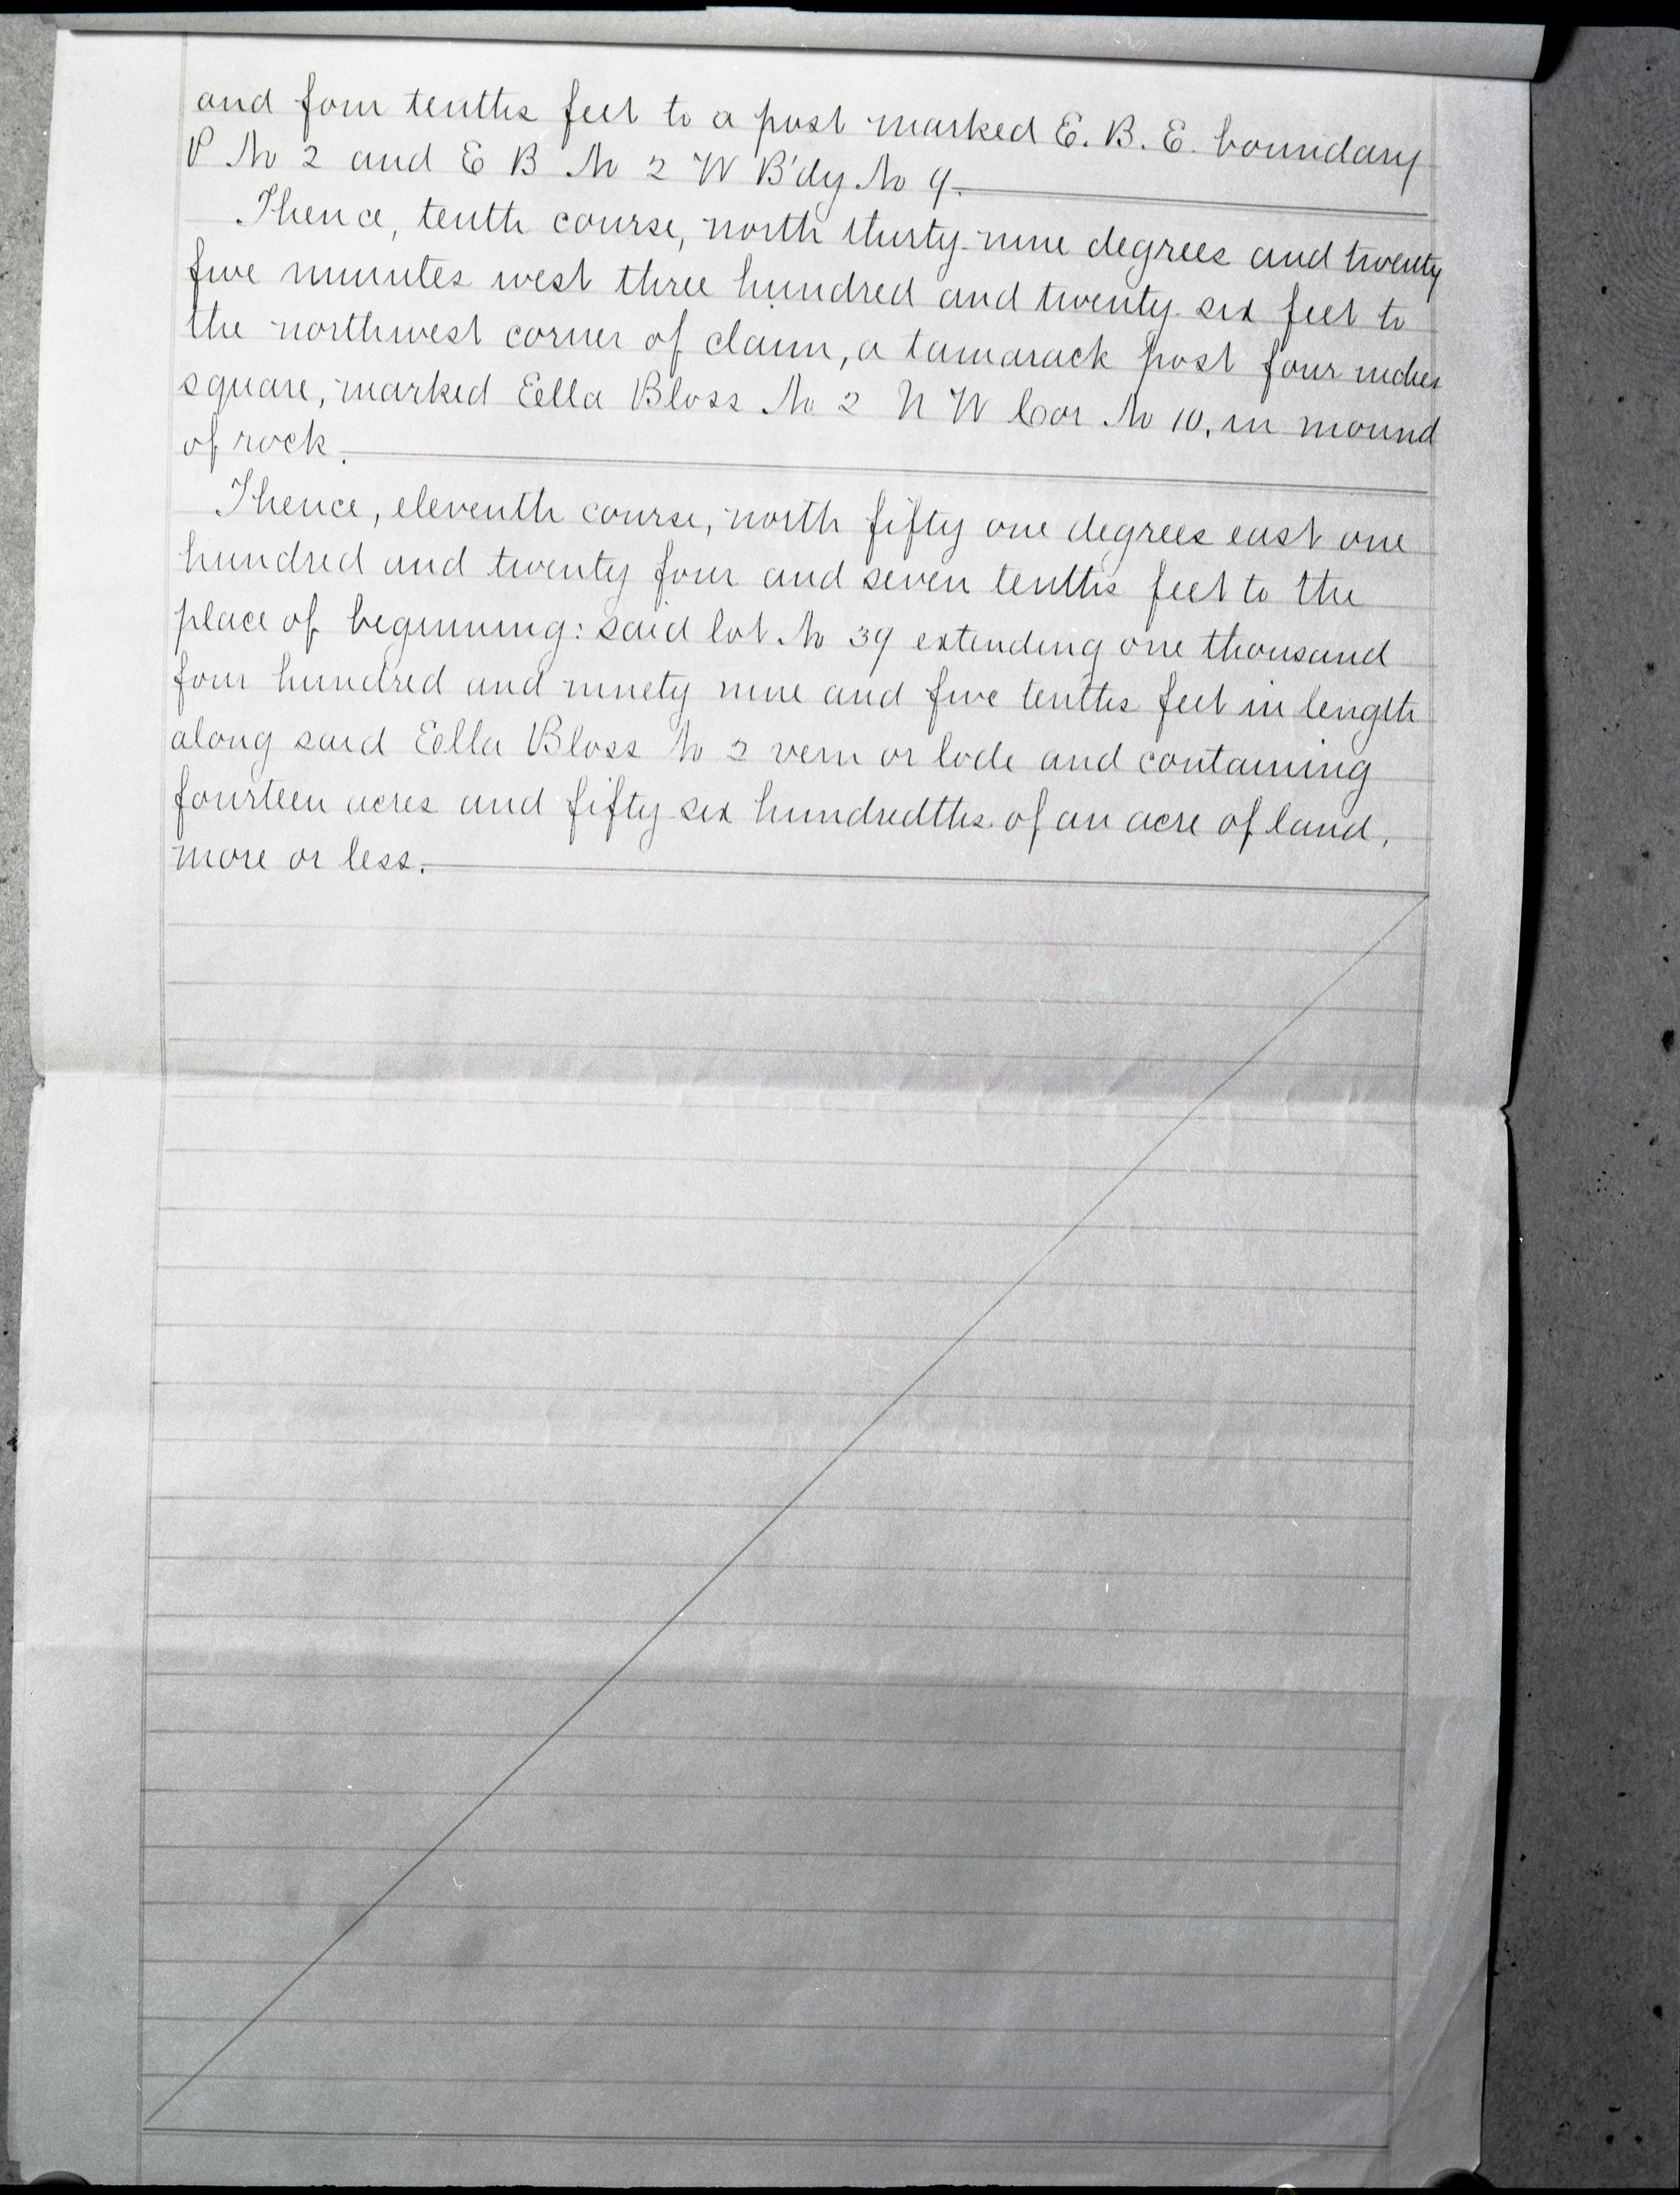 and four tenths feet to a post marked E. B. E. boundary
P No 2 and E B No 2 W B'dy No 9.
Thence, tenth course, north thirty-nine degrees and twenty
five minutes west three hundred and twenty-six feet to
the northwest corner of claim, a tamarack post four inches
square, marked Ella Bloss No 2 N W Cor No 10, in mound
of rock.
Thence, eleventh course, north fifty one degrees east one
hundred and twenty four and seven tenths feet to the
place of beginning: said lot No 39 extending one thousand
four hundred and ninety nine and five tenths feet in length
along said Ella Bloss No 2 vein or lode and containing
fourteen acres and fifty-six hundredths of an acre of land,
more or less.